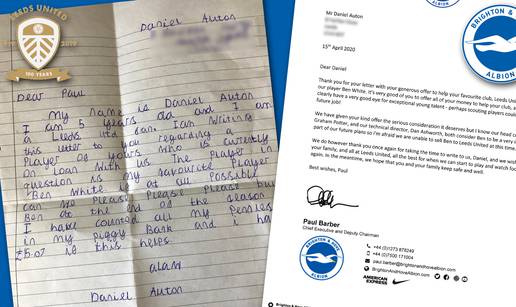 LEEDS UNITED
100 YEARS
Daniel Auton
Dear Paul
My name is Daniel Auton
I am 5 years old and I am
a Leeds utd fan. I am Writing
this letter to you regarding a
Player of yours who is
on loan with us The Player in
question is my favourite Player
Ben White is at all Possible
can we Please Please Please
Ben at the end of the season
I have counted all my Pennies
in my Piggy Bank and I
is this helps.
Daniel Auton
BRIGHTON & HOVE
ALBION
Mr Daniel Auton
15th April 2020
Dear Daniel
Thank you for your letter with your generous offer to help your favourite club, Leeds
our player Ben White, it's very good of you to offer all of your money to help your club,
clearly have a very good eye for exceptional young talent - perhaps scouting players
future job!
We have given your kind offer the serious consideration it deserves but I know our head
Graham Potter, and our technical director, Dan Ashworth, both consider Ben to be a very
part of our future plans so I'm afraid we are unable to sell Ben to Leeds United at this time.
We do however thank you once again for taking the time to write to us, Daniel, and we
your family, and all at Leeds United, all the best for when we can start to play and watch
again. In the meantime, we hope that you and your family keep safe and well.
Best wishes, Paul
Paul Barber
Chief Executive and Deputy Chairman
BRIGHTON & HOVE
ALBION
+44 (0)1273 878249
+44 (0)7500 171004
paul.barber@brightonandhovealbion.com
BrightonAndHoveAlbion.com
AMERICAN EXPRESS